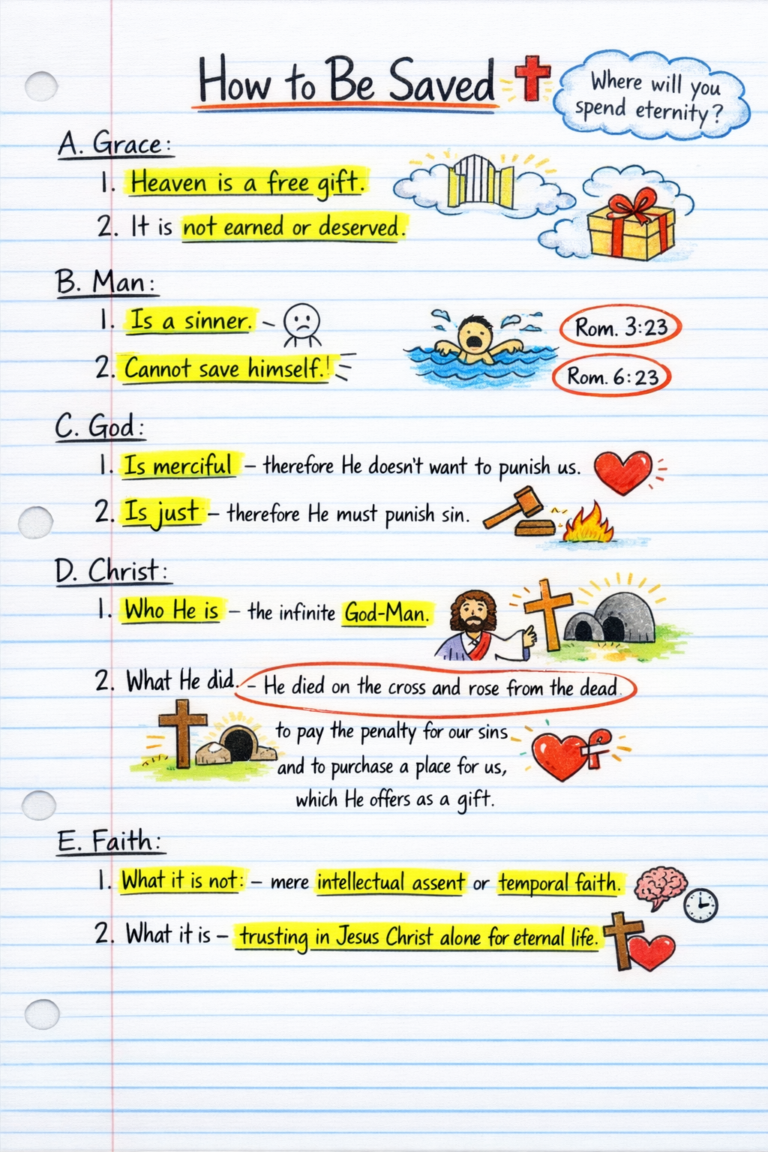 How to Be Saved
Where will you
spend eternity?
A. Grace:
1. Heaven is a free gift.
2. It is not earned or deserved.
B. Man:
1. Is a sinner. –
2. Cannot save himself.!
Rom. 3:23
Rom. 6:23
C. God:
1. Is merciful – therefore He doesn't want to punish us.
2. Is just – therefore He must punish sin.
D. Christ:
1. Who He is – the infinite God-Man.
2. What He did. – He died on the cross and rose from the dead
to pay the penalty for our sins
and to purchase a place for us,
which He offers as a gift.
E. Faith:
1. What it is not: – mere intellectual assent or temporal faith.
2. What it is – trusting in Jesus Christ alone for eternal life.